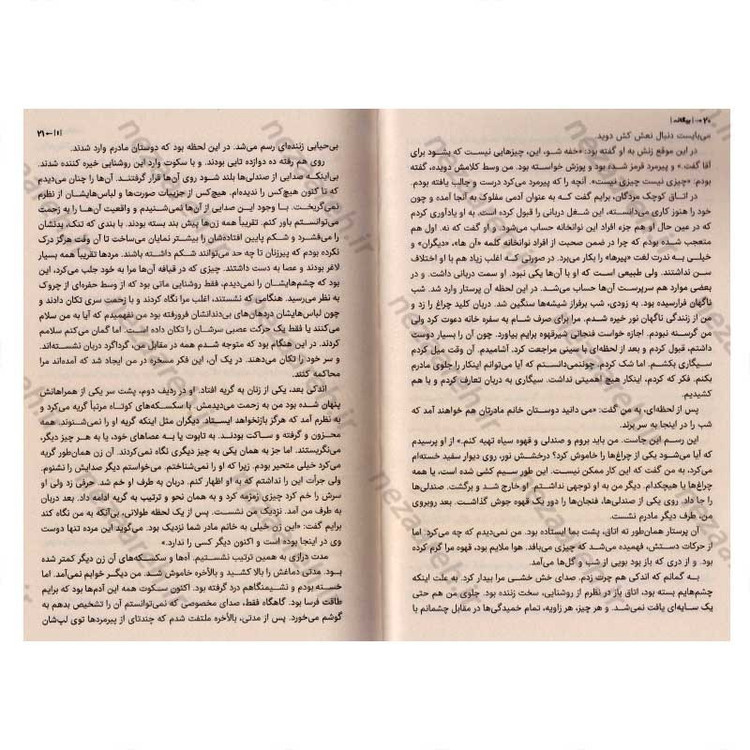 ۲۰ ← | بیگانه |
می‌بایست دنبال نعش کش دوید.
در این موقع زنش به او گفته بود: «خفه شو، این، چیزهایی نیست که بشود برای
آقا گفت.» و پیرمرد قرمز شده بود و پوزش خواسته بود. من وسط کلامش دویده، گفته
بودم: «چیزی نیست چیزی نیست». آنچه را که پیرمرد می‌کرد درست و جالب یافته بودم.
در اتاق کوچک مردگان، برایم گفت که به عنوان آدمی مفلوک به آنجا آمده و چون
خود را هنوز کاری می‌دانسته، این شغل دربانی را قبول کرده است. به او یادآوری کردم
که در عین حال او هم جزء افراد این نوانخانه حساب می‌شود. و او گفت که نه. اول هم
متعجب شده بودم که چرا در ضمن صحبت از افراد نوانخانه کلمه «آن ها»، «دیگران» و
خیلی به ندرت لغت «پیرها» را بکار می‌برد. در صورتی که اغلب زیاد هم با او اختلاف
سن نداشتند. ولی طبیعی است که او با آن‌ها یکی نبود. او سمت دربانی داشت. و در
بعضی موارد هم سرپرست آن‌ها حساب می‌شد. در این لحظه آن پرستار وارد شد.
ناگهان شب فرارسیده بود. به زودی، شب برفراز شیشه‌ها سنگین شد. دربان کلید چراغ را زد و
من از زندگی ناگهان نور خیره شدم. مرا برای صرف شام به سفره خانه دعوت کرد ولی
من گرسنه نبودم. اجازه خواست فنجانی شیرقهوه برایم بیاورد. چون آن را بسیار دوست
داشتم، قبول کردم و بعد از لحظه‌ای با سینی مراجعت کرد. آشامیدم. آن وقت میل کردم
سیگاری بکشم. اما شک کردم. چون‌نمی‌دانستم که آیا می‌توانم اینکار را جلوی مادرم
بکنم. فکر که کردم، اینکار هیچ اهمیتی نداشت. سیگاری به دربان تعارف کردم و با هم
کشیدیم.
پس از لحظه‌ای، به من گفت: «می دانید دوستان خانم مادرتان هم خواهند آمد که
شب را در اینجا به سر برند.
این رسم این جاست. من باید بروم و صندلی و قهوه سیاه تهیه کنم.» از او پرسیدم
که آیا می‌شود یکی از چراغ‌ها را خاموش کرد؟ درخشش نور، روی دیوار سفید خسته‌ام
می‌کرد، به من گفت که این کار ممکن نیست. این طور سیم کشی شده است، یا همه
چراغ‌ها یا هیچکدام. دیگر من به او توجهی نداشتم. او خارج شد و برگشت. صندلی‌ها
را جا داد. روی یکی از صندلی‌ها، فنجان‌ها را دور یک قهوه جوش گذاشت. بعد روبروی
من، در طرف دیگر مادرم نشست.
آن پرستار همان‌طور ته اتاق، پشت بما ایستاده بود. من نمی‌دیدم که چه می‌کرد. اما
از حرکات دستش، فهمیده می‌شد که چیزی می‌بافد. هوا ملایم بود، قهوه مرا گرم کرده
بود. و از دری که باز بود بویی از شب و گل‌ها می‌آمد.
به گمانم که اندکی هم چرت زدم. صدای خش خشی مرا بیدار کرد. به علت اینکه
چشم‌هایم بسته بود، اتاق باز در نظرم از روشنایی، سخت زننده بود. جلوی من هم حتی
یک سایه‌ای یافت نمی‌شد. و هر چیز، هر زاویه، تمام خمیدگی‌ها در مقابل چشمانم با
| ۱ | → ۲۱
بی‌حیایی زننده‌ای رسم می‌شد. در این لحظه بود که دوستان مادرم وارد شدند.
روی هم رفته ده دوازده تایی بودند. و با سکوت وارد این روشنایی خیره کننده شدند.
بی‌اینکه صدایی از صندلی‌ها بلند شود روی آن‌ها قرار گرفتند. آن‌ها را چنان می‌دیدم
که تا کنون هیچ‌کس را ندیده‌ام. هیچ‌کس از جزییات صورت‌ها و لباس‌هایشان از نظرم
نمی‌گریخت. با وجود این صدایی از آن‌ها نمی‌شنیدم و واقعیت آن‌ها را به زحمت
می‌توانستم باور کنم. تقریباً همه زن‌ها پیش بند بسته بودند. با بندی که تنک، بدنشان
را می‌فشرد و شکم پایین افتاده‌شان را بیشتر نمایان می‌ساخت تا آن وقت هرگز درک
نکرده بودم که پیرزنان تا چه حد می‌توانند شکم داشته باشند. مردها تقریباً همه بسیار
لاغر بودند و عصا به دست داشتند. چیزی که در قیافه آن‌ها مرا به خود جلب می‌کرد، این
بود که چشم‌هایشان را نمی‌دیدم، فقط روشنایی ماتی بود که از وسط حفره‌ای از چروک
به نظر می‌رسید. هنگامی که نشستند، اغلب مرا نگاه کردند و با زحمت سری تکان دادند و
چون لباس‌هایشان دردهان‌های بی‌دندانشان فرورفته بود من نفهمیدم که آیا به من سلام
می‌کنند یا فقط یک حرکت عصبی سرشان را تکان داده است. اما گمان می‌کنم سلامم
کردند. در این هنگام بود که متوجه شدم همه در مقابل من، گرداگرد دربان نشسته‌اند.
و سر خود را تکان می‌دهند. در یک آن، این فکر مسخره در من ایجاد شد که آمده‌اند مرا
محاکمه کنند.
اندکی بعد، یکی از زنان به گریه افتاد. او در ردیف دوم، پشت سر یکی از همراهانش
پنهان شده بود من به زحمت می‌دیدمش با سکسکه‌های کوتاه مرتباً گریه می‌کرد و
به نظرم آمد که هرگز بازنخواهد ایستاد. دیگران مثل اینکه گریه او را نمی‌شنیدند.
محزون و گرفته و ساکت بودند. به تابوت یا به عصاهای خود، یا به هر چیز دیگر،
می‌نگریستند. اما جز به همان یکی به چیز دیگری نگاه نمی‌کردند. آن زن همان‌طور گریه
می‌کرد خیلی متحیر بودم. زیرا که او را نمی‌شناختم. می‌خواستم دیگر صدایش را نشنوم.
ولی جرأت این را نداشتم که به او اظهار کنم. دربان به طرف او خم شد. حرفی زد ولی او
سرش را خم کرد چیزی زمزمه کرد و به همان نحو و ترتیب به گریه ادامه داد. بعد دربان
به طرف من آمد. نزدیک من نشست. پس از یک لحظه طولانی، بی‌آنکه به من نگاه کند
برایم گفت: «این زن خیلی به خانم مادر شما نزدیک بود. می‌گوید این مرده تنها دوست
وی در اینجا بوده است و اکنون دیگر کسی را ندارد.»
مدت درازی به همین ترتیب نشستیم. آه‌ها و سکسکه‌های آن زن دیگر کمتر شده
بود. مدتی دماغش را بالا کشید و بالأخره خاموش شد. من دیگر خوابم نمی‌آمد. اما
خسته بودم و نشیمنگاهم درد گرفته بود. اکنون سکوت همه این آدم‌ها بود که برایم
طاقت فرسا بود. گاهگاه فقط، صدای مخصوصی که نمی‌توانستم آن را تشخیص بدهم به
گوشم می‌خورد. پس از مدتی، بالأخره ملتفت شدم که چندتای از پیرمردها توی لپ‌شان
nezareh.ir